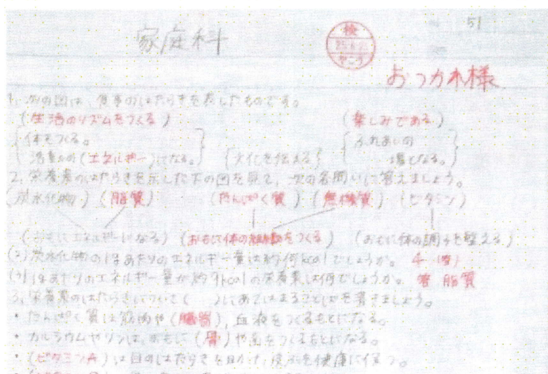 51
家庭科
検
おつかれ様
1. 次の図は、食事のはたらきを表したものです。
(生活のリズムをつくる) (楽しみである)
体をつくる。 ふれあいの
活動の(エネルギー)になる。 文化を伝える 場となる。
2. 栄養素のはたらきを示した下の図を見て、次の各問いに答えましょう。
(炭水化物) (脂質) (たんぱく質) (無機質) (ビタミン)
(おもにエネルギーになる) (おもに体の組織をつくる) (おもに体の調子を整える)
(2) 炭水化物の1gあたりのエネルギー量は約何kcalでしょうか。 4
(3) 1gあたりのエネルギー量が約9kcalの栄養素は何でしょうか。 答 脂質
3. 栄養素のはたらきについて( )にあてはまることばを書きましょう。
・たんぱく質は筋肉や(臓器)、血液をつくるもとになる。
・カルシウムやリンは、おもに(骨)や歯をつくるもとになる。
・(ビタミンA)は目のはたらきを助け、皮ふを健康に保つ。